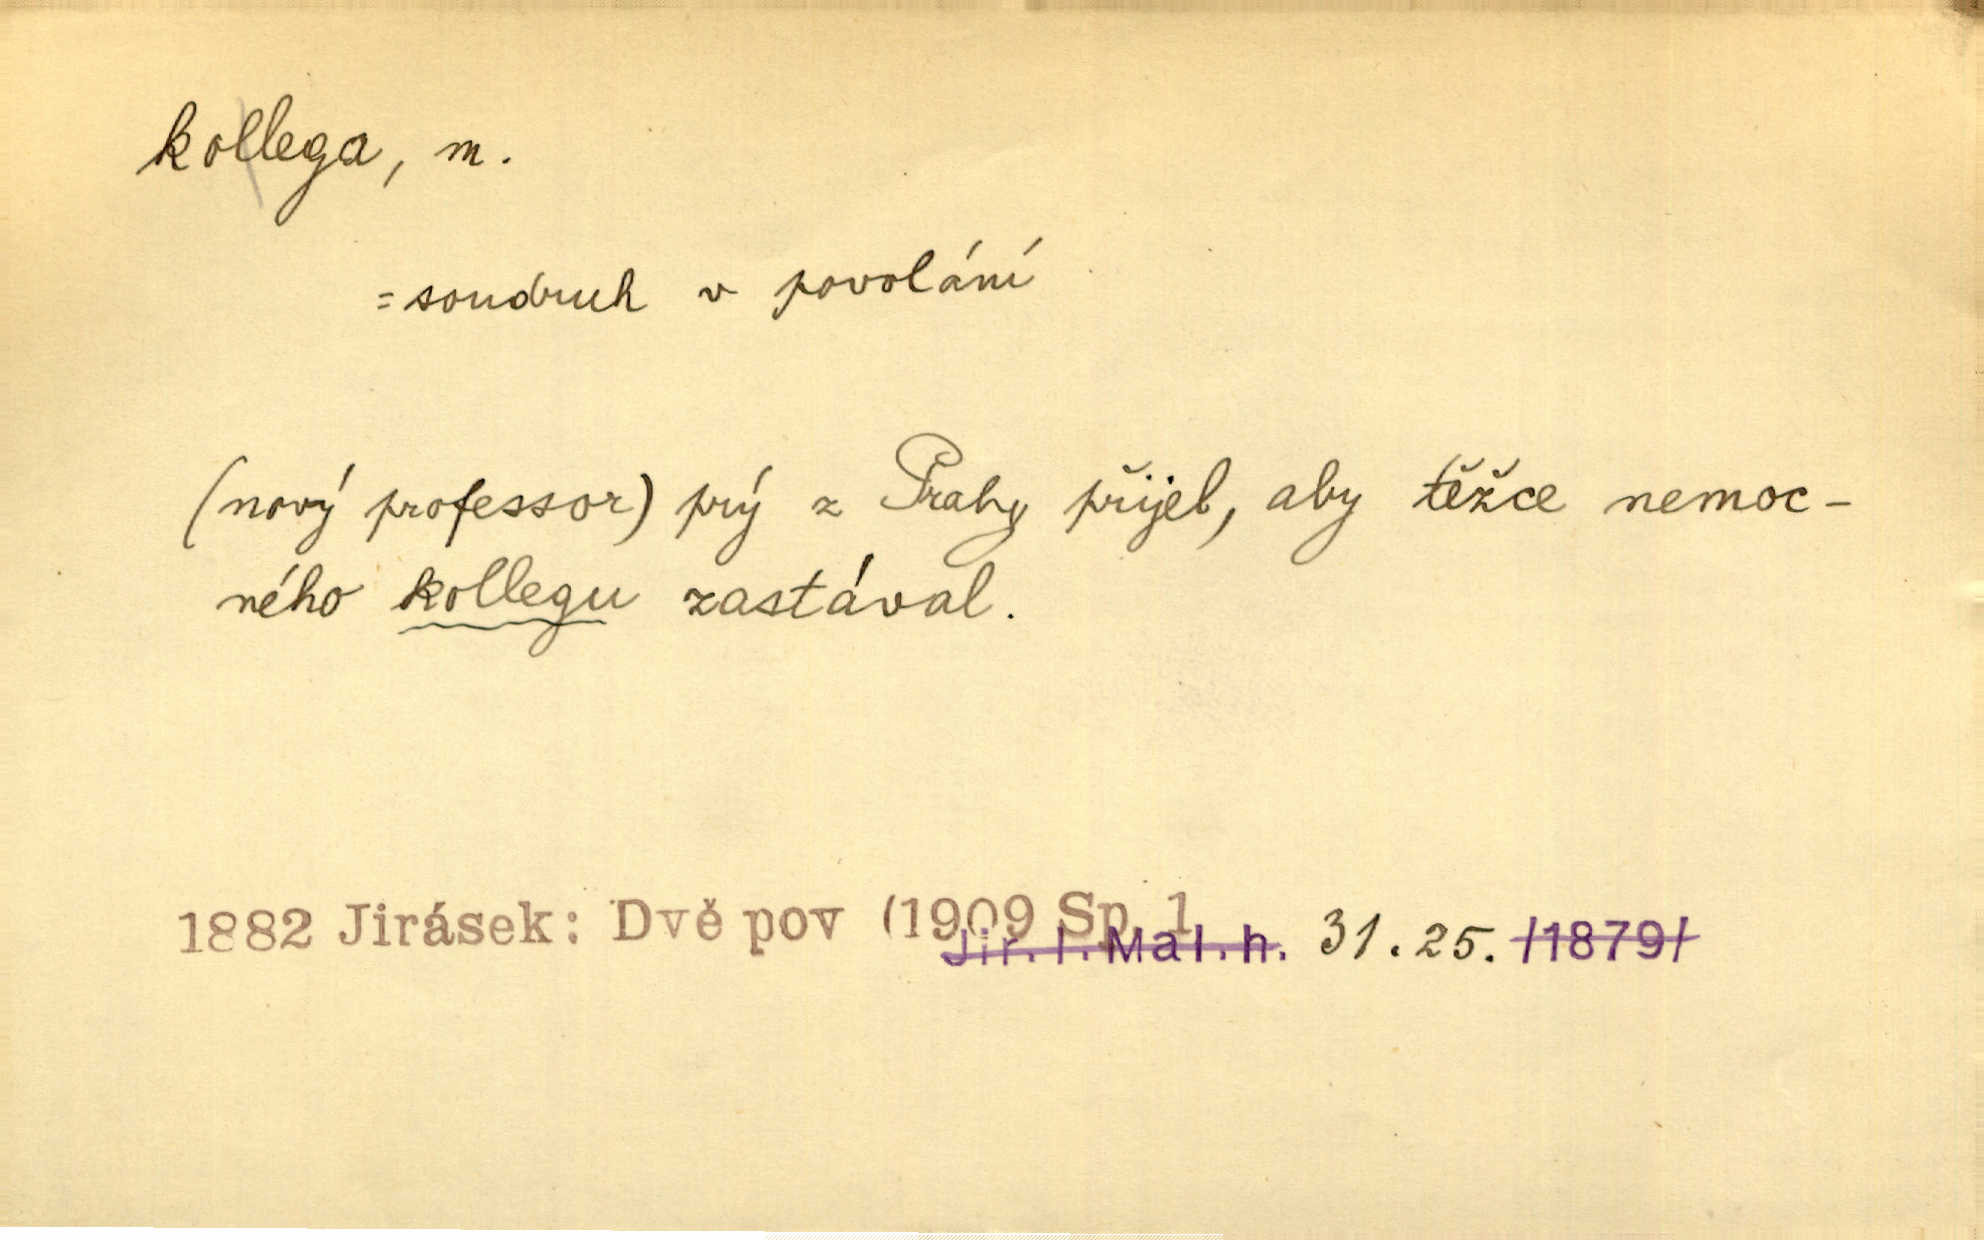 kollega, m.
= soudruh v povolání
(nový professor) prý z Prahy přijel, aby těžce nemoc-
ného kollegu zastával.
1882 Jirásek: Dvě pov (1909 Sp. 1
Jir. I. Mal. h. 31. 25. /1879/